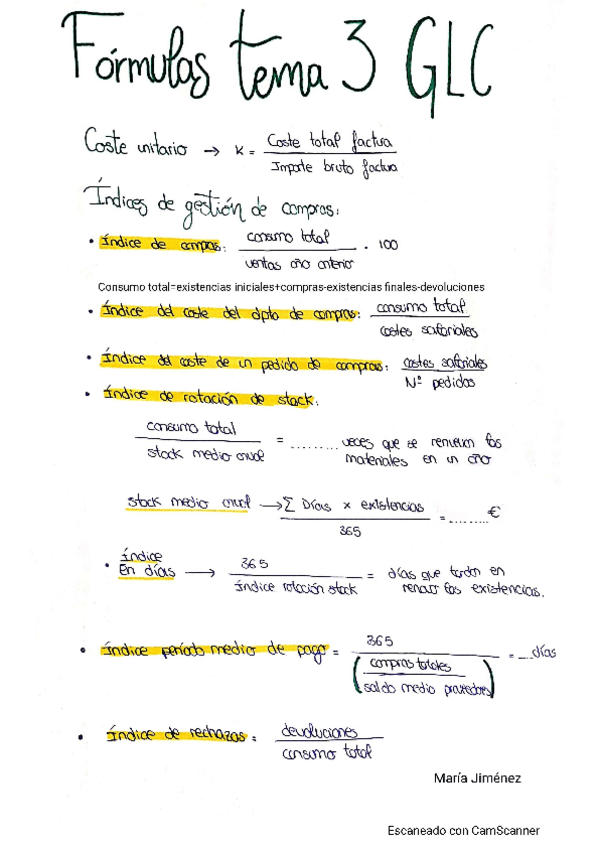 Fórmulas tema 3 GLC
Coste unitario → K = Coste total factura / Importe bruto factura
Índices de gestión de compras:
• Índice de compras: consumo total / ventas año anterior · 100
Consumo total=existencias iniciales+compras-existencias finales-devoluciones
• Índice del coste del dpto de compras: consumo total / costes salariales
• Índice del coste de un pedido de compras: costes salariales / Nº pedidos
• Índice de rotación de stock:
consumo total / stock medio anual = ......... veces que se renuevan los
materiales en un año
stock medio anual → Σ Días x existencias / 365 = ......... €
• índice
En días → 365 / índice rotación stock = días que tardan en
renovar las existencias.
• índice período medio de pago = 365 / (compras totales / saldo medio proveedores) = ... días
• índice de rechazos: devoluciones / consumo total
María Jiménez
Escaneado con CamScanner